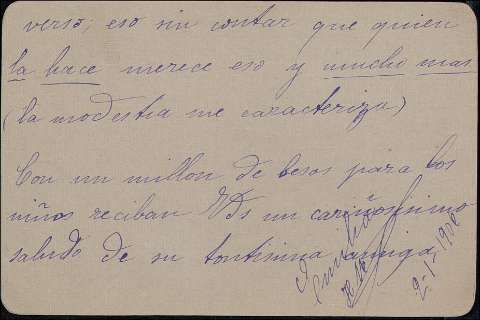 verso; eso sin contar que quien
la hace merece eso y mucho mas
(la modestia me caracteriza)
Con un millon de besos para los
niños reciban Vds un cariñosisimo
saludo de su tontisima amiga
2-1-1902